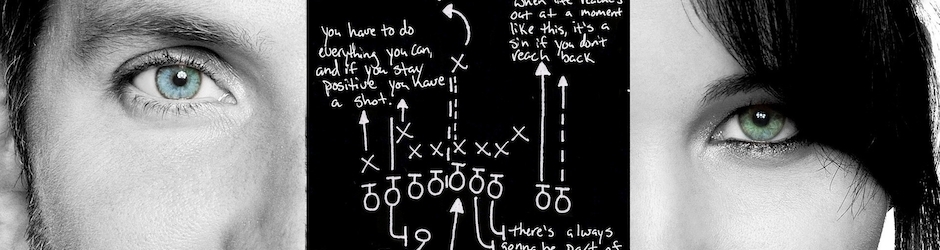 you have to do
everything you can,
and if you stay
positive you have
a shot.
when life reaches
out at a moment
like this, it's a
sin if you don't
reach back
there's always
gonna be part of